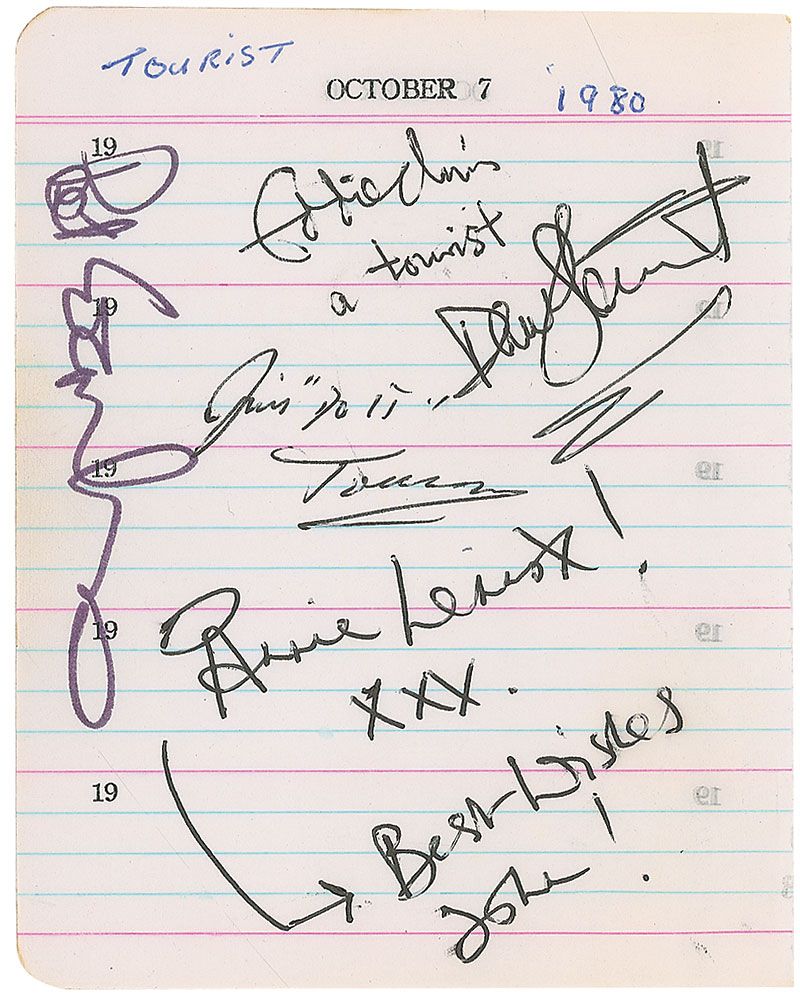 TOURIST
OCTOBER 7 1980
19
Eddie Chin
a tourist
Dave Stewart
19
Jim "Do it"
Tourist
19
Annie Lennox!
xxx.
19
Best Wishes
John!
19